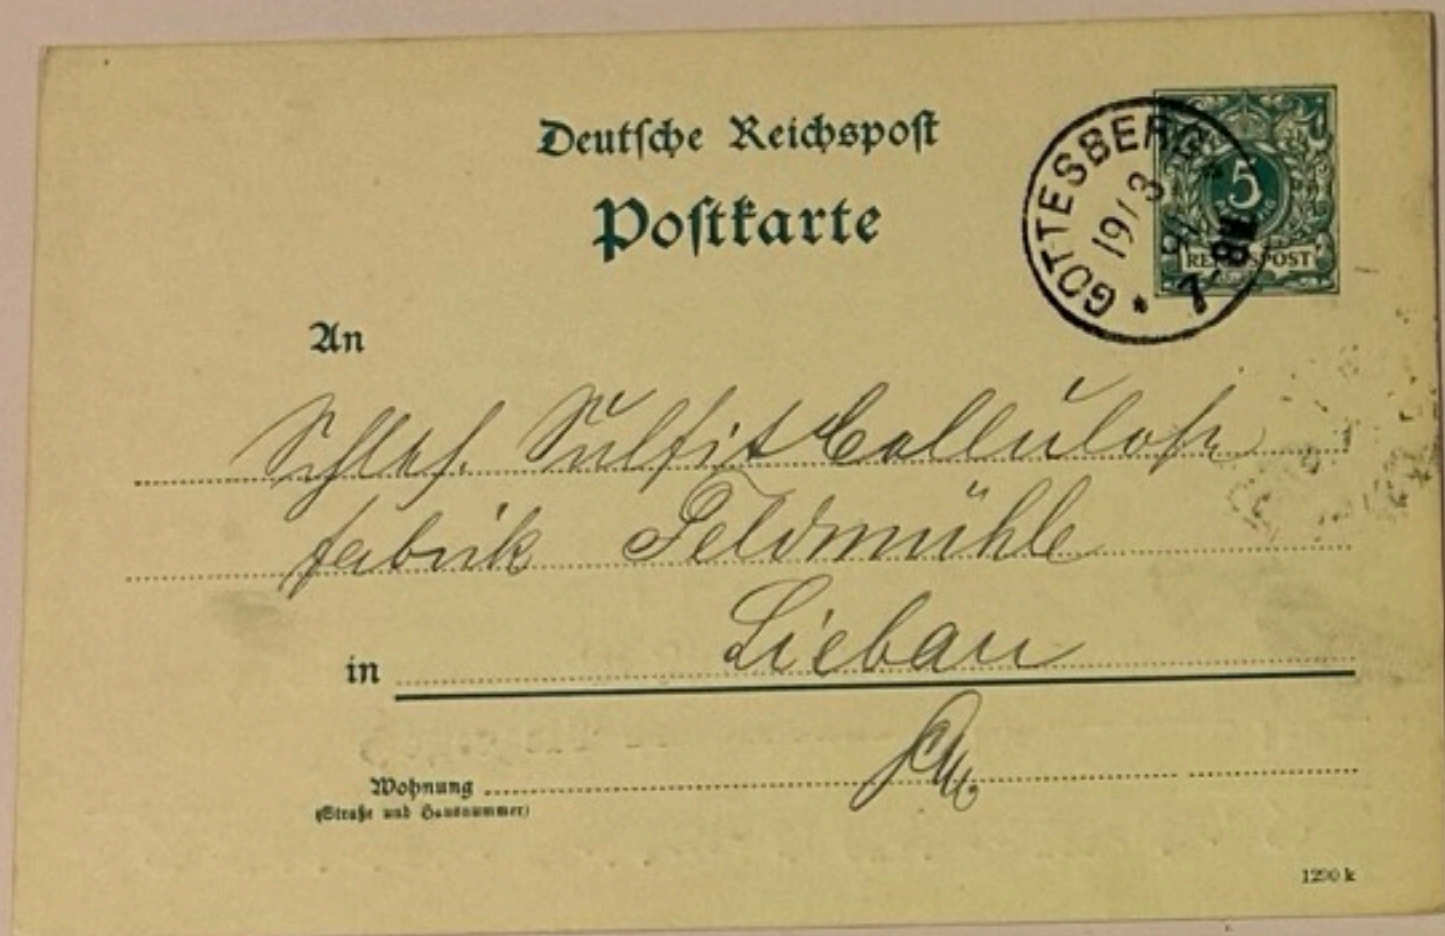 Deutsche Reichspost
Postkarte
GOTTESBERG
19/3
91
7-8N
*
5
REICHSPOST
An
Schles. Sulfit Cellulose
fabrik Feldmühle
in Liebau
Wohnung
(Straße und Hausnummer)
1290 k